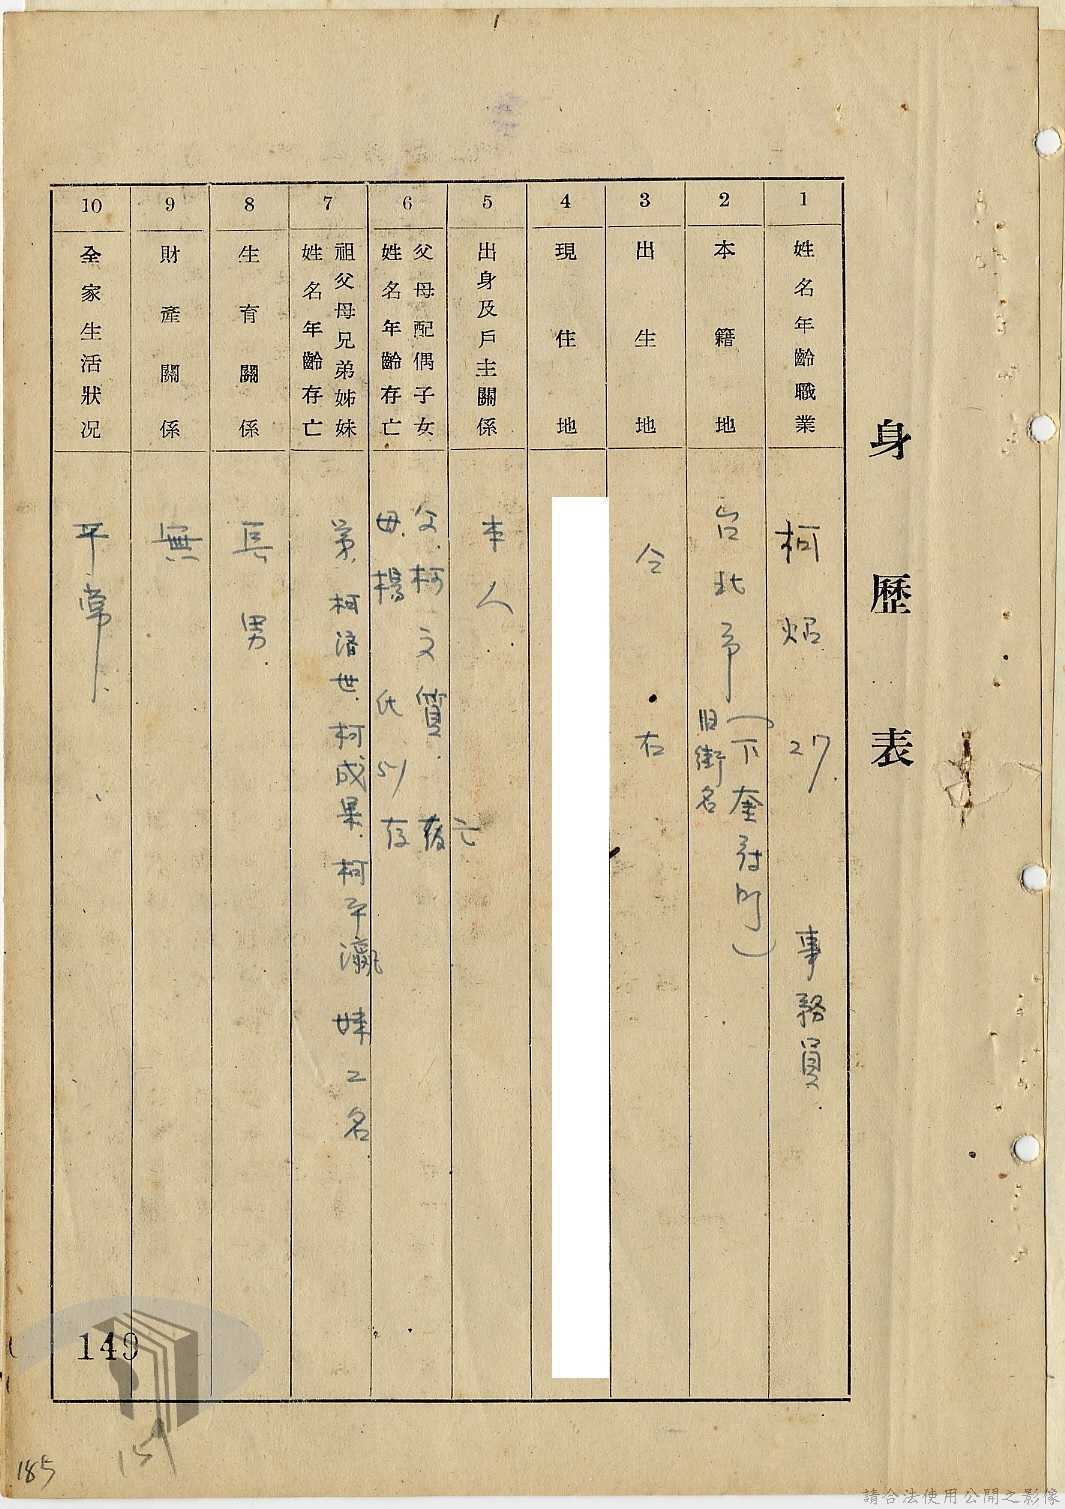 身歷表
1
姓名年齡職業
柯炤 27 事務員
2
本籍地
台北市(下奎府町)
旧街名
3
出生地
仝右
4
現住地
5
出身及戶主關係
本人
6
父母配偶子女
姓名年齡存亡
父.柯文質. 亡
母.楊氏 51 存
7
祖父母兄弟姊妹
姓名年齡存亡
弟.柯濟世.柯成果.柯平瀛 妹2名
8
生育關係
長男
9
財產關係
無
10
全家生活狀況
平常
149
151
185
請合法使用公開之影像